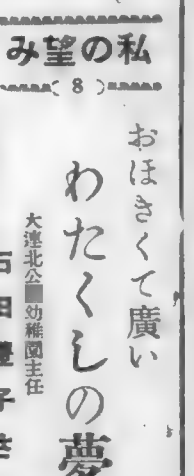 私の望み
(8)
おほきくて廣い
わたくしの夢
大連北公■幼稚園主任
石田豊子